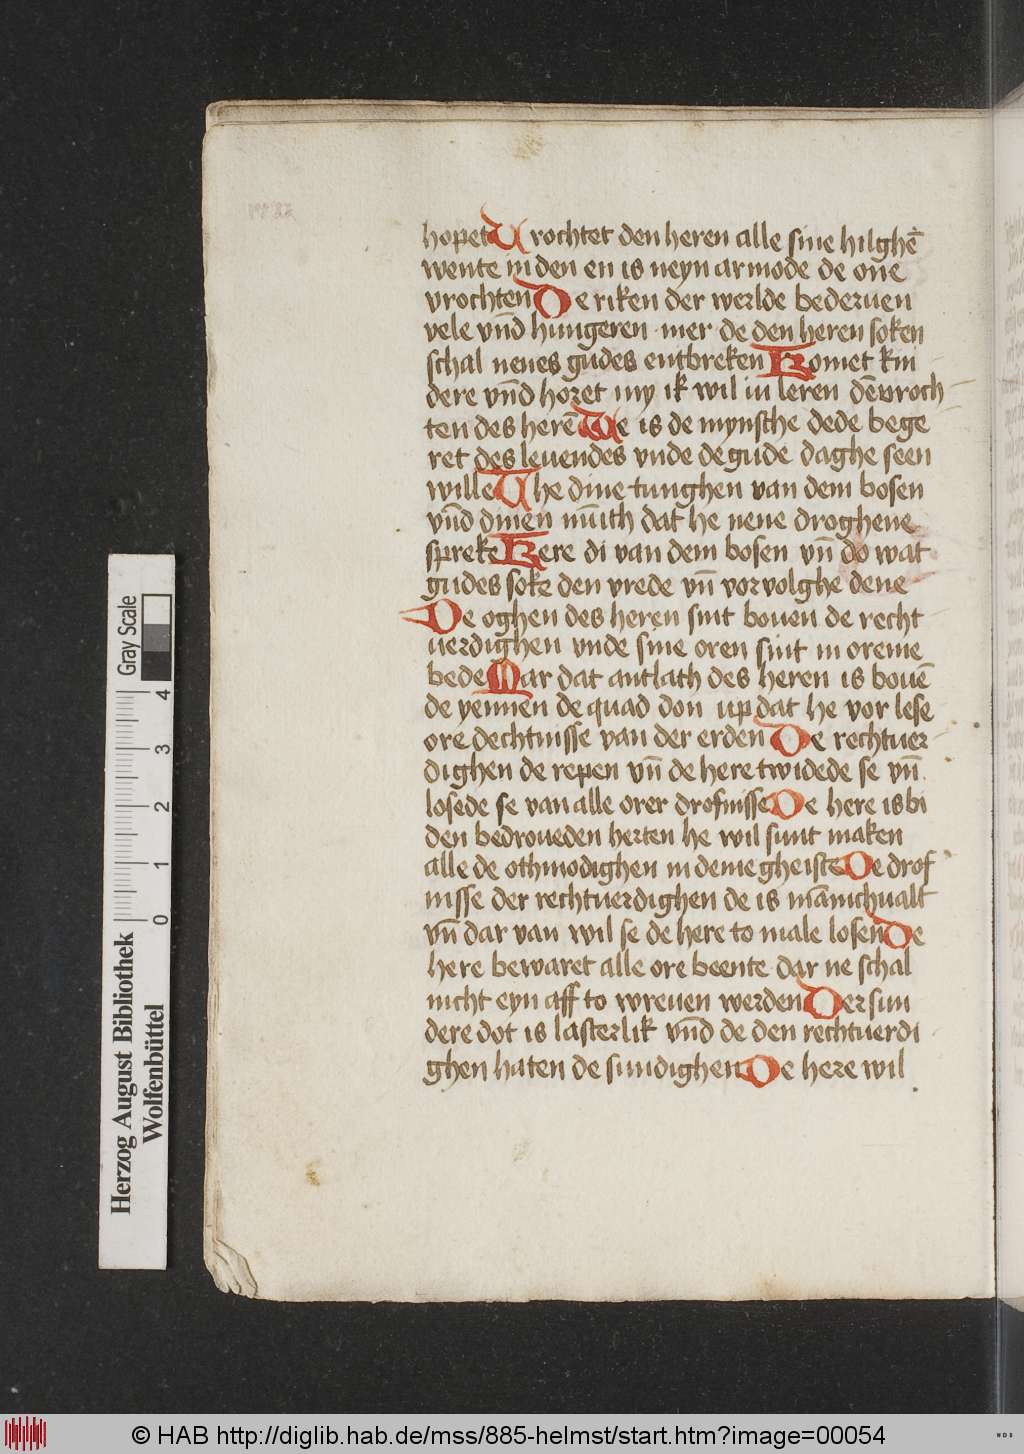 hopet Vrochtet den heren alle sine hilghē
wente in den en is neyn armode de one
vrochten De riken der werlde bederuen
vele vn̄d hungeren mer de den heren soken
schal nenes gudes entbreken Komet kin
dere vn̄d horet my ik wil iu leren dē vroch
ten des herē We is de mynsche dede bege
ret des leuendes vnde de gude daghe seen
wille The dine tunghen van dem bosen
vn̄d dinen mūth dat he nene droghene
spreke Kere di van dem bosen vn̄ do wat
gudes soke den vrede vn̄ vorvolghe dene
De oghen des heren sint bouen de recht
uerdighen vnde sine oren sint in oreme
bede Mar dat antlath des heren is bouē
de yennen de quad don up dat he vor lese
ore dechtnisse van der erden De rechtuer
dighen de repen vn̄ de here twidede se vn̄
losede se van alle orer drofnisse De here is bi
den bedroueden herten he wil sunt maken
alle de othmodighen in deme gheiste De drof
nisse der rechtuerdighen de is mānichualt
vn̄ dar van wil se de here to male losen De
here bewaret alle ore beente dar ne schal
nicht eyn aff to wreuen werden Der sun
dere dot is lasterlik vn̄d de den rechtuerdi
ghen haten de sundighen De here wil
Herzog August Bibliothek
Wolfenbüttel
0 1 2 3 4
Gray Scale
© HAB http://diglib.hab.de/mss/885-helmst/start.htm?image=00054